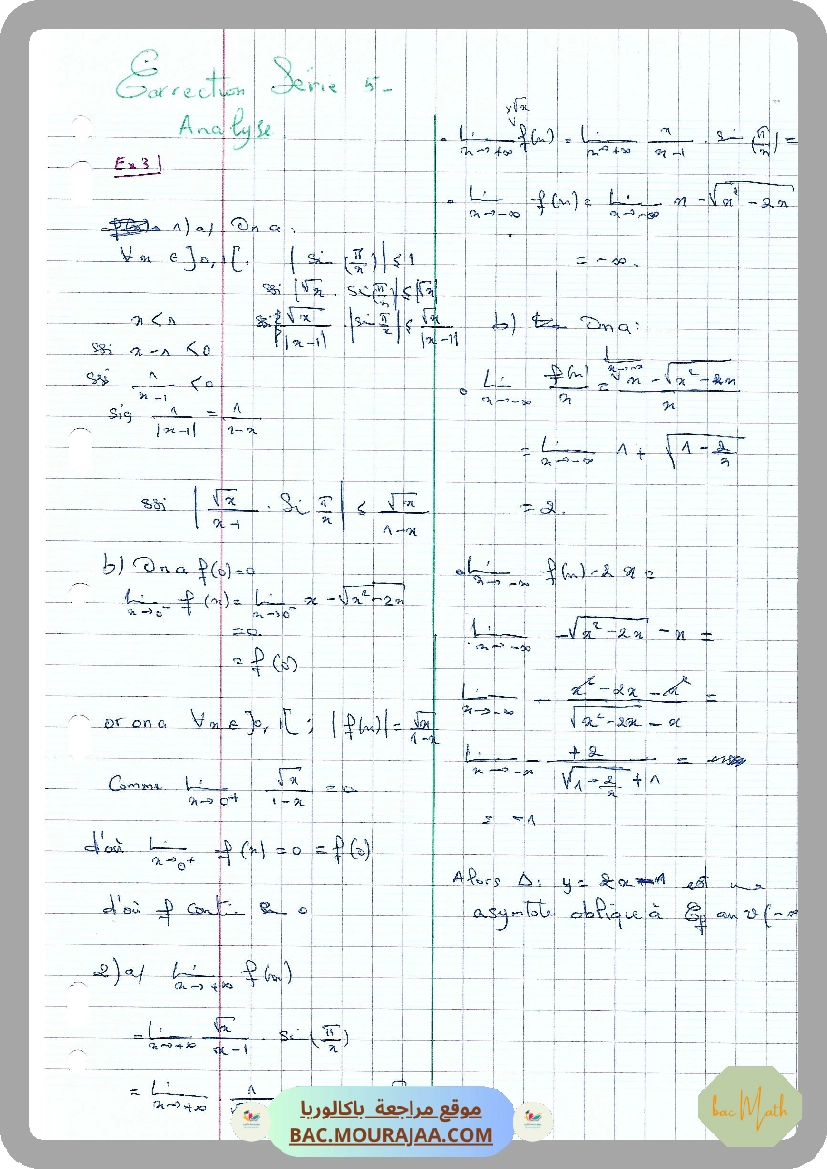 Correction Série 5-
Analyse
Ex 3
1) a/ On a :
∀x ∈ ]0,1[ . |sin(π/x)| ≤ 1
ssi |√x . sin(π/x)| ≤ |√x|
x < 1 ssi √x/|x-1| . |sin π/x| ≤ √x/|x-1|
ssi x-1 < 0
ssi 1/(x-1) < 0
sig 1/|x-1| = 1/(1-x)
ssi |√x/(x-1) . Sin π/x| ≤ √x/(1-x)
b) On a f(0)=0
Lim x→0⁻ f(x) = Lim x→0⁻ x - √(x²-2x)
= 0
= f(0)
or on a ∀x ∈ ]0,1[ ; |f(x)| = √x/(1-x)
Comme Lim x→0⁺ √x/(1-x) = 0
d'où Lim x→0⁺ f(x) = 0 = f(0)
d'où f cont. en 0
2) a/ Lim x→+∞ f(x)
= Lim x→+∞ √x/(x-1) . sin(π/x)
= Lim x→+∞
• Lim x→+∞ f(x) = Lim x→+∞ x/(x-1) . sin(π/x) =
• Lim x→-∞ f(x) = Lim x→-∞ x - √(x²-2x)
= -∞.
b) On a :
• Lim x→-∞ f(x)/x = Lim x→-∞ (x - √(x²-2x))/x
= Lim x→-∞ 1 + √(1-2/x)
= 2.
• Lim x→-∞ f(x) - 2x =
Lim x→-∞ -√(x²-2x) - x =
Lim x→-∞ - (x²-2x-x²)/(√(x²-2x) - x) =
Lim x→-∞ - +2/(√(1-2/x) + 1) =
= -1
Alors Δ: y = 2x-1 est une
asymtote oblique à ℭf au v(-∞
موقع مراجعة باكالوريا
BAC.MOURAJAA.COM
bac Math